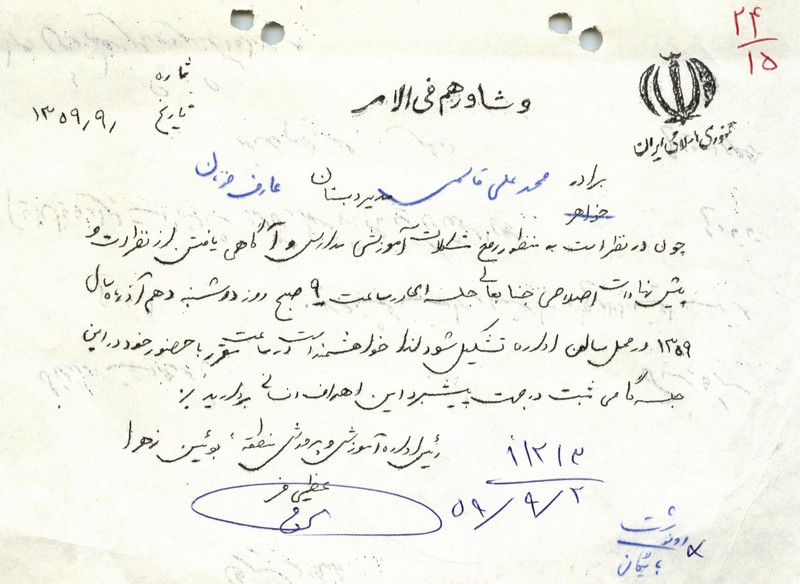 ۲۴
۱۵
جمهوری اسلامی ایران
و شاورهم فی الامر
شماره
تاریخ ۱۳۵۹/۹/
برادر محمد علی قاسمی مدیر دبستان عارف
خواهر
چون در نظر است به منظور رفع مشکلات آموزشی مدارس و آگاهی یافتن از نظرات و
پیشنهادات اصلاحی جنابعالی جلسه ای در ساعت ۹ صبح روز دوشنبه دهم آذرماه سال
۱۳۵۹ در محل سالن اداره تشکیل شود لذا خواهشمند است در ساعت مقرر با حضور خود در این
جلسه گامی مثبت در جهت پیشبرد این اهداف انسانی بردارید
رئیس اداره آموزش و پرورش منطقه بوئین زهرا
عظیمی فر
۱/۲۱۳
۵۹/۹/۲
رونوشت
بایگان